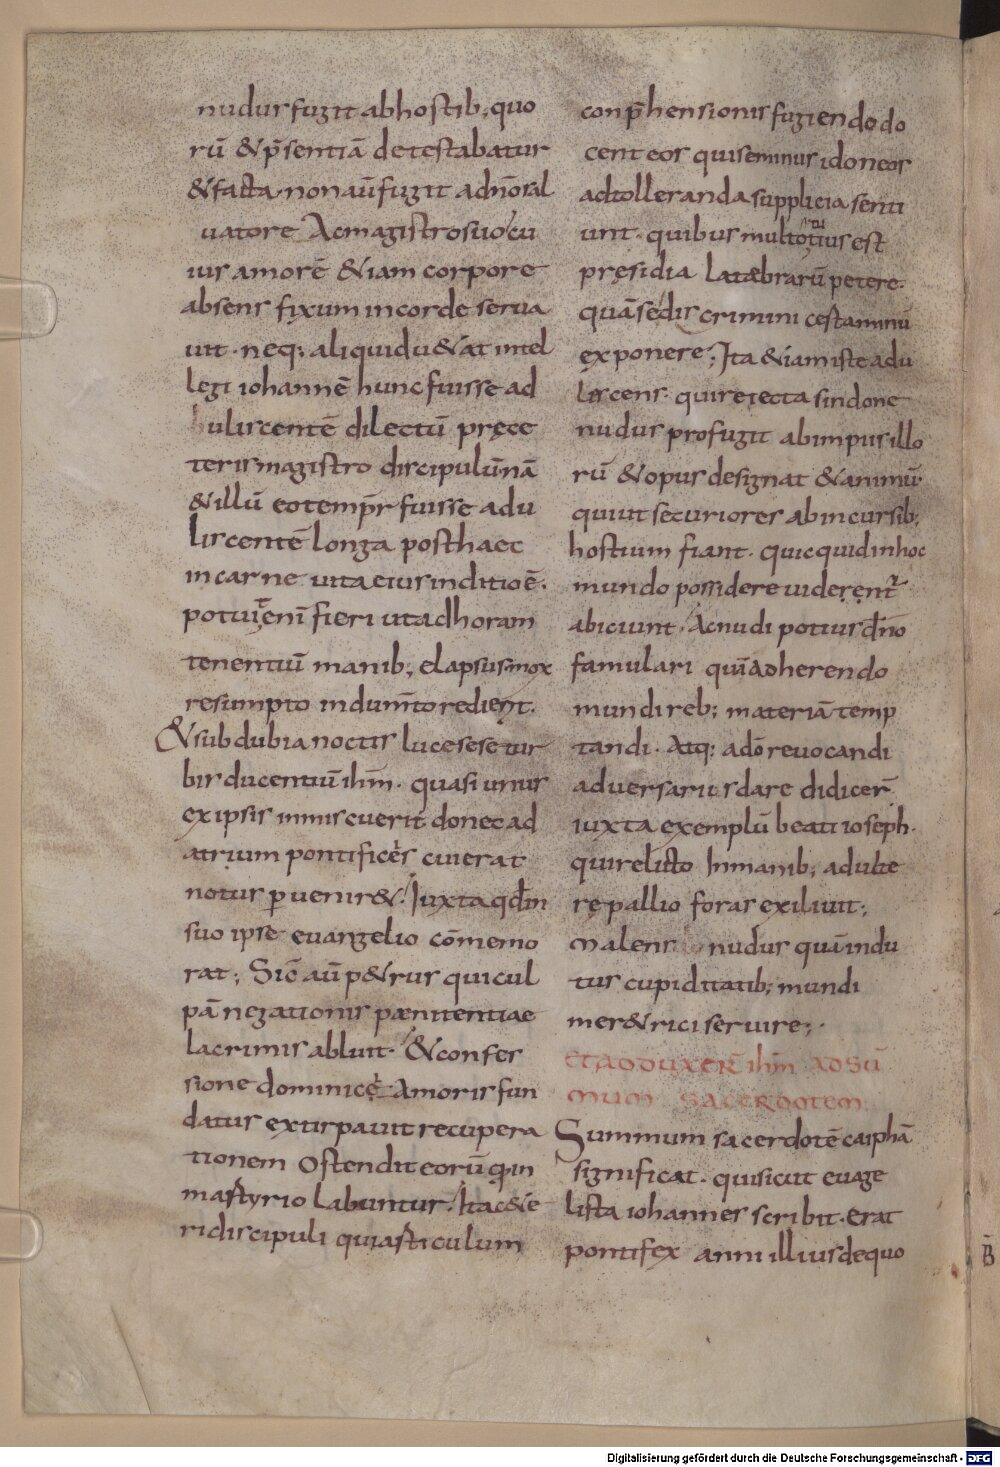 nudus fugit abhostib; quo
rū & p̄sentiā detestabatur
& facta· non aū fugit adn̄o sal
uatore Ac magistro suo cu
ius amorē & iam corpore
absens fixum in corde serua
uit· neq; aliquid u&at intel
legi iohannē hunc fuisse ad
uliscentē dilectū pręce
teris magistro discipulū nā
& illū eo temp̄r fuisse adu
liscentē longa post haec
in carne uita eius inditio ē·
potuit enī fieri ut ad horam
tenentiū manib; elapsus mox
resumpto indum̄to redient.
& sub dubia noctis luce sese tur
bis ducentiū ih̄m· quasi unus
ex ipsis inmiscuerit donec ad
atrium pontificęs cui erat
notus ꝑuenir&. Iuxta qd̄ in
suo ipse euangelio cōmemo
rat; Sic̄ aū p&rus qui cul
pā negationis pænitentiae
lacrimis abluit· & confes
sione dominicę Amoris fun
datus extirpauit recupera
tionem ostendit eorū qui in
mastyrio labuntur. Ita c&e
ri discipuli qui asticulum
conp̄hensionis fugiendo do
cent eos qui se minus idoneos
ad tolleranda supplicia senti
unt· quibus multotius est
pręsidia latæbrarū petere·
quā se dis crimini cestaminū
exponere; Ita & iam iste adu
liscens· qui reiecta sindone
nudus profugit ab impus illo
rū & opus designat & animū
qui ut securiores ab incursib;
hostium fiant· quicquid in hoc
mundo possidere uiderent̄
abiciunt· Ac nudi potius dn̄o
famulari quā adherendo
mundi reb; materiā temp
tandi· Atq; a dō reuocandi
aduersariis dare didicer̄
iuxta exemplū beati ioseph·
qui relicto In manib; adulte
rę pallio foras exiliuit;
malens nudus quā indu
tus cupiditatib; mundi
mer&rici seruire;·
ETADDUXER̄ ih̄m ADSŪ
MUM SACERDOTEM
Summum sacerdotē caiphā
significat· qui sicut euage
lista iohannes scribit· erat
pontifex anni illius de quo
Digitalisierung gefördert durch die Deutsche Forschungsgemeinschaft - DFG